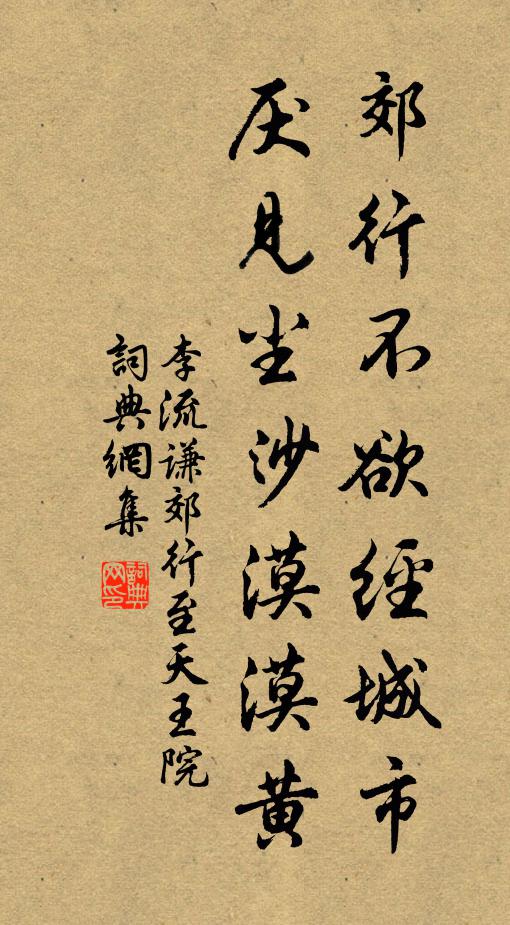 郊行不欲經城市
厌見尘沙漠漠黄
李流谦郊行至天王院
詞典網集
詞典网印